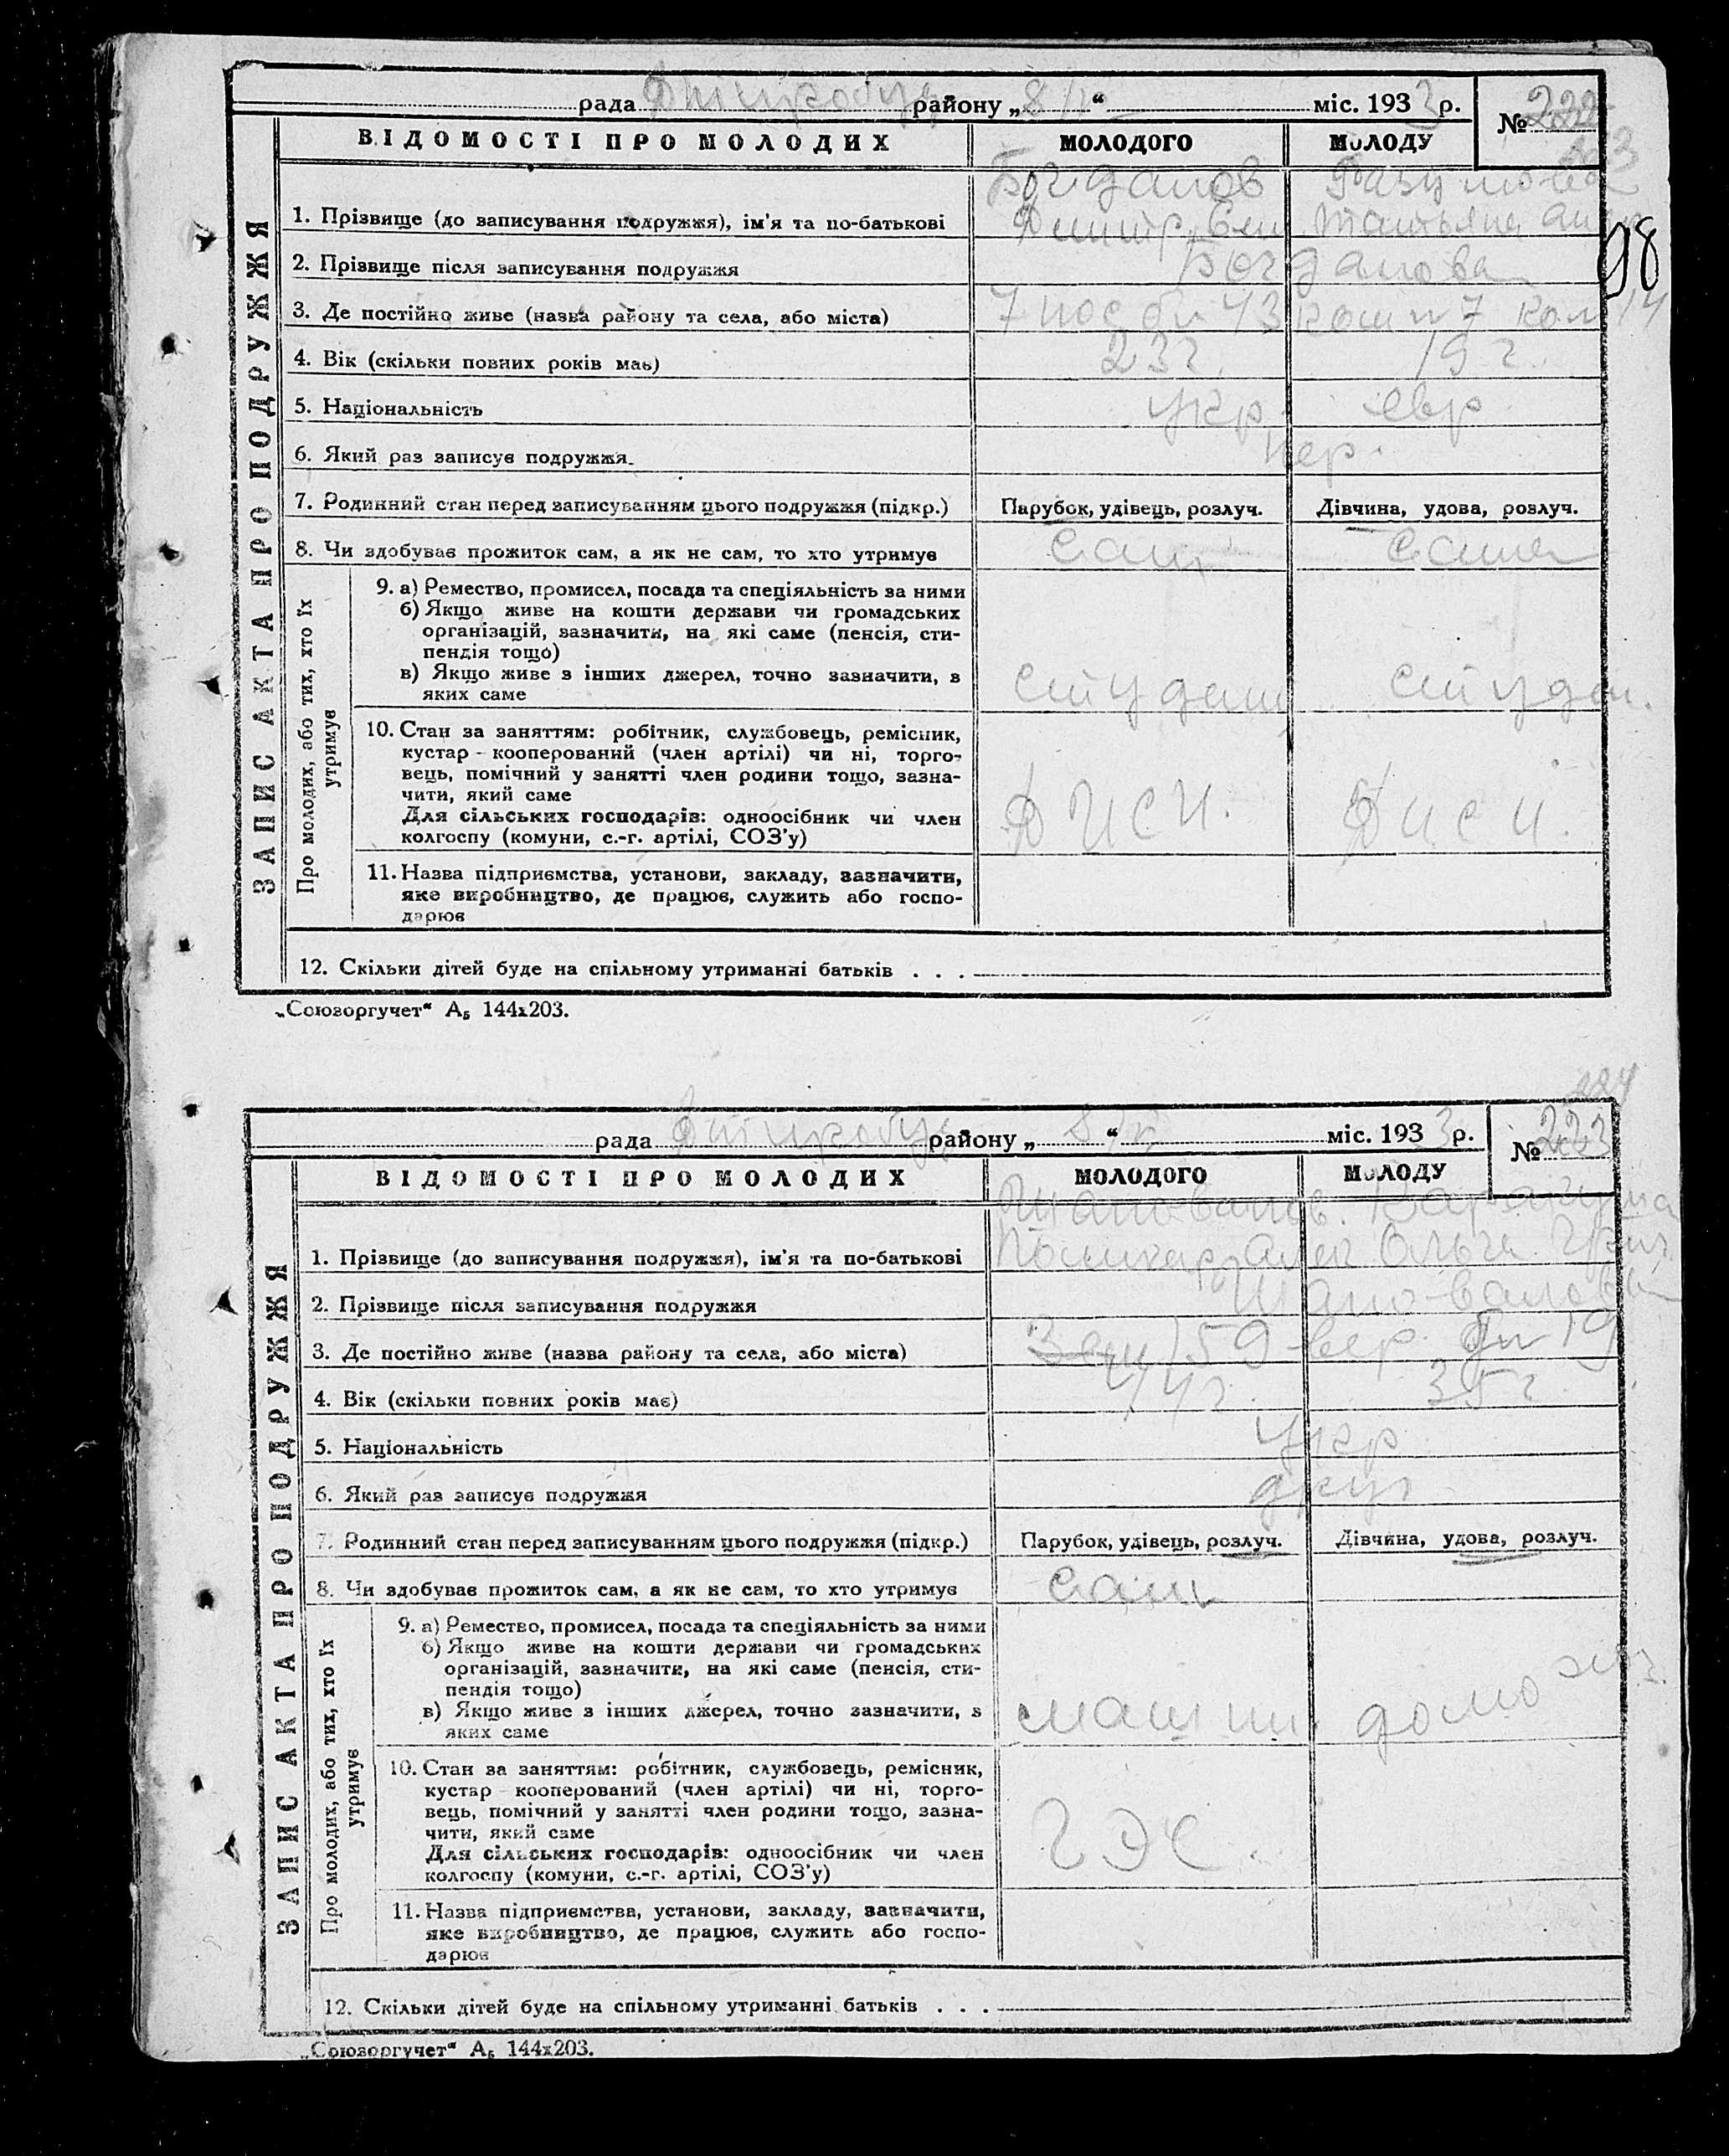 рада района „8/IV“ міс. 1933 р.
№ 222
223
ВІДОМОСТІ ПРО МОЛОДИХ МОЛОДОГО МОЛОДУ
98
ЗАПИС АКТА ПРО ПОДРУЖЖЯ
1. Прізвище (до записування подружжя), ім'я та по-батькові
Богданов
Дмитр. Татьяна
2. Прізвище після записування подружжя Богданова
3. Де постійно живе (назва району та села, або міста) 7 пос 43 7 14
4. Вік (скільки повних років має) 23 г. 19 г.
5. Національність укр. евр
6. Який раз записує подружжя. пер.
7. Родинний стан перед записуванням цього подружжя (підкр.) Парубок, удівець, розлуч. Дівчина, удова, розлуч.
8. Чи здобуває прожиток сам, а як не сам, то хто утримує сам сама
Про молодих, або тих, хто їх
утримує
9. а) Ремество, промисел, посада та спеціяльність за ними
б) Якщо живе на кошти держави чи громадських
організацій, зазначити, на які саме (пенсія, сти-
пендія тощо)
в) Якщо живе з інших джерел, точно зазначити, з
яких саме студент студен.
10. Стан за заняттям: робітник, службовець, ремісник,
кустар - кооперований (член артілі) чи ні, торго-
вець, помічний у занятті член родини тощо, зазна-
чити, який саме
Для сільських господарів: одноосібник чи член
колгоспу (комуни, с.-г. артілі, СОЗ'у)
ДИСИ. ДИСИ.
11. Назва підприємства, установи, закладу, зазначити,
яке виробництво, де працює, служить або госпо-
дарює
12. Скільки дітей буде на спільному утриманні батьків . . .
„Союзоргучет“ А₅ 144х203.
224
рада района „8/IV“ міс. 1933 р.
№ 223
ВІДОМОСТІ ПРО МОЛОДИХ МОЛОДОГО МОЛОДУ
ЗАПИС АКТА ПРО ПОДРУЖЖЯ
1. Прізвище (до записування подружжя), ім'я та по-батькові
Шаповалов.
Поликарп Ольга Григ.
2. Прізвище після записування подружжя Шаповалова
3. Де постійно живе (назва району та села, або міста) 59 19
4. Вік (скільки повних років має) 44 г. 35 г.
5. Національність укр
6. Який раз записує подружжя друг
7. Родинний стан перед записуванням цього подружжя (підкр.) Парубок, удівець, розлуч. Дівчина, удова, розлуч.
8. Чи здобуває прожиток сам, а як не сам, то хто утримує сам
Про молодих, або тих, хто їх
утримує
9. а) Ремество, промисел, посада та спеціяльність за ними
б) Якщо живе на кошти держави чи громадських
організацій, зазначити, на які саме (пенсія, сти-
пендія тощо)
в) Якщо живе з інших джерел, точно зазначити, з
яких саме машин. домохоз.
10. Стан за заняттям: робітник, службовець, ремісник,
кустар - кооперований (член артілі) чи ні, торго-
вець, помічний у занятті член родини тощо, зазна-
чити, який саме
Для сільських господарів: одноосібник чи член
колгоспу (комуни, с.-г. артілі, СОЗ'у)
ГЭС.
11. Назва підприємства, установи, закладу, зазначити,
яке виробництво, де працює, служить або госпо-
дарює
12. Скільки дітей буде на спільному утриманні батьків . . .
„Союзоргучет“ А₅ 144х203.